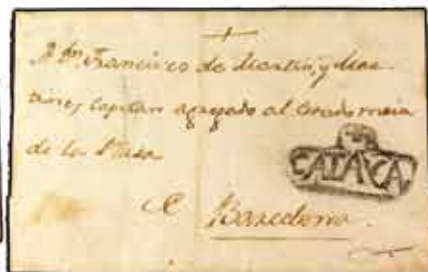 A Dn Francisco de Martin, y Mar
tinez Capitan agregado al Estado maior
de la Plaza
CATAVA
Barcelona.